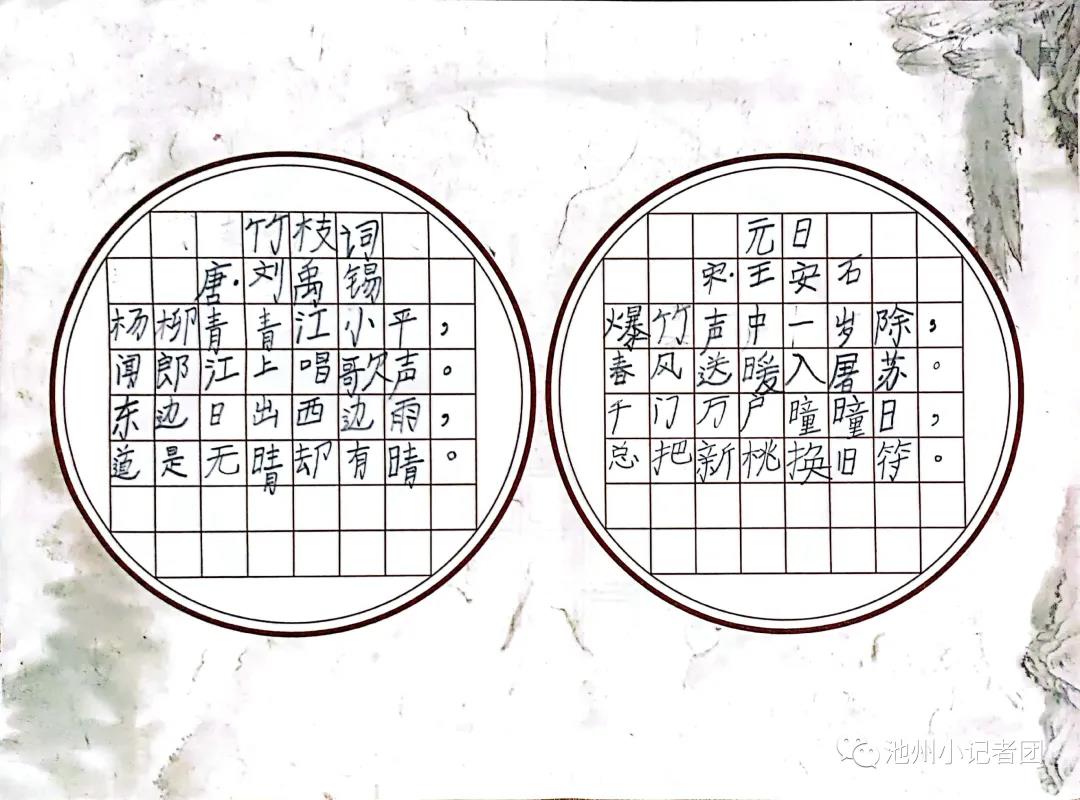 竹枝词
唐·刘禹锡
杨柳青青江小平，
闻郎江上唱歌声。
东边日出西边雨，
道是无晴却有晴。
元日
宋·王安石
爆竹声中一岁除，
春风送暖入屠苏。
千门万户曈曈日，
总把新桃换旧符。
池州小记者团